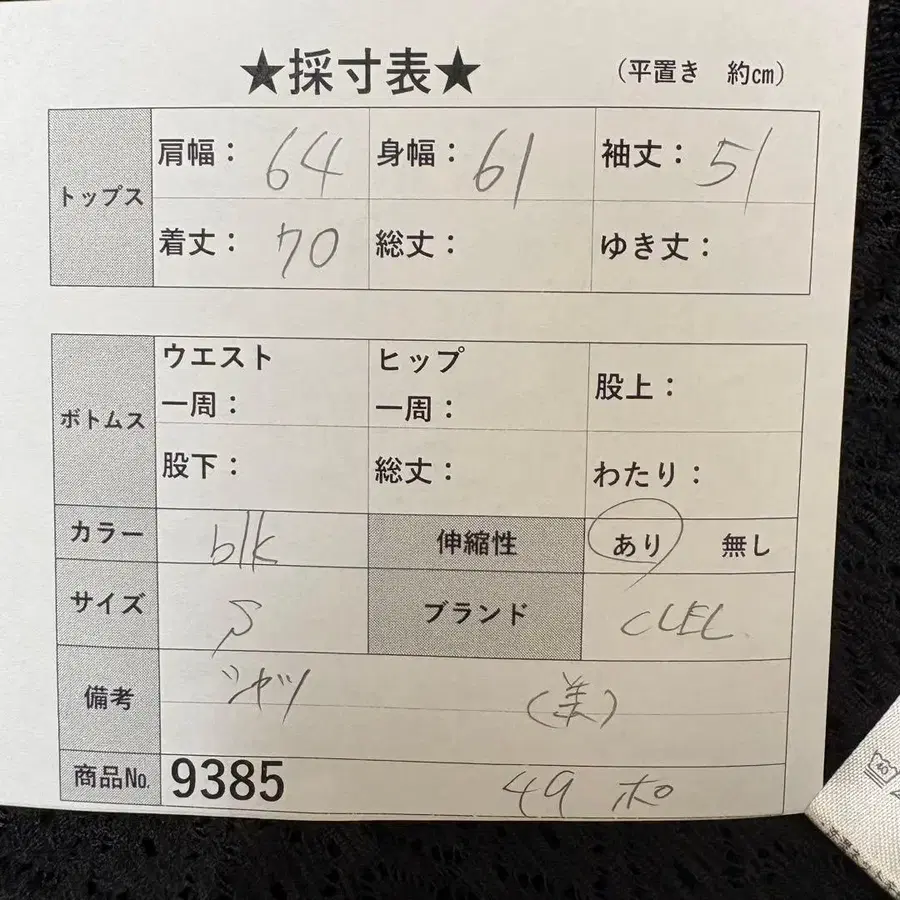 ★採寸表★ (平置き 約cm)
トップス
肩幅: 64 身幅: 61 袖丈: 51
着丈: 70 総丈: ゆき丈:
ボトムス
ウエスト一周: ヒップ一周: 股上:
股下: 総丈: わたり:
カラー blk 伸縮性 あり 無し
サイズ S ブランド CLEL
備考 シャツ (美)
商品No. 9385 49 ポ